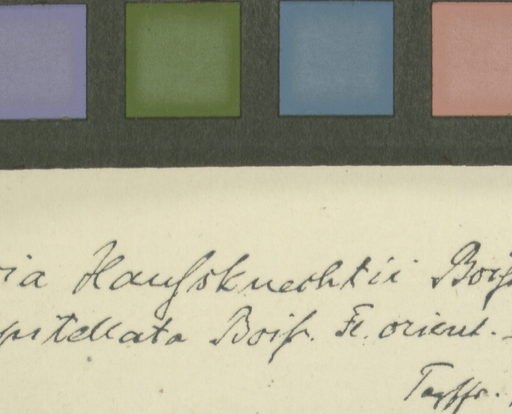 ria Haußknechtii Boiß
pitellata Boiß. Fl. orient. -